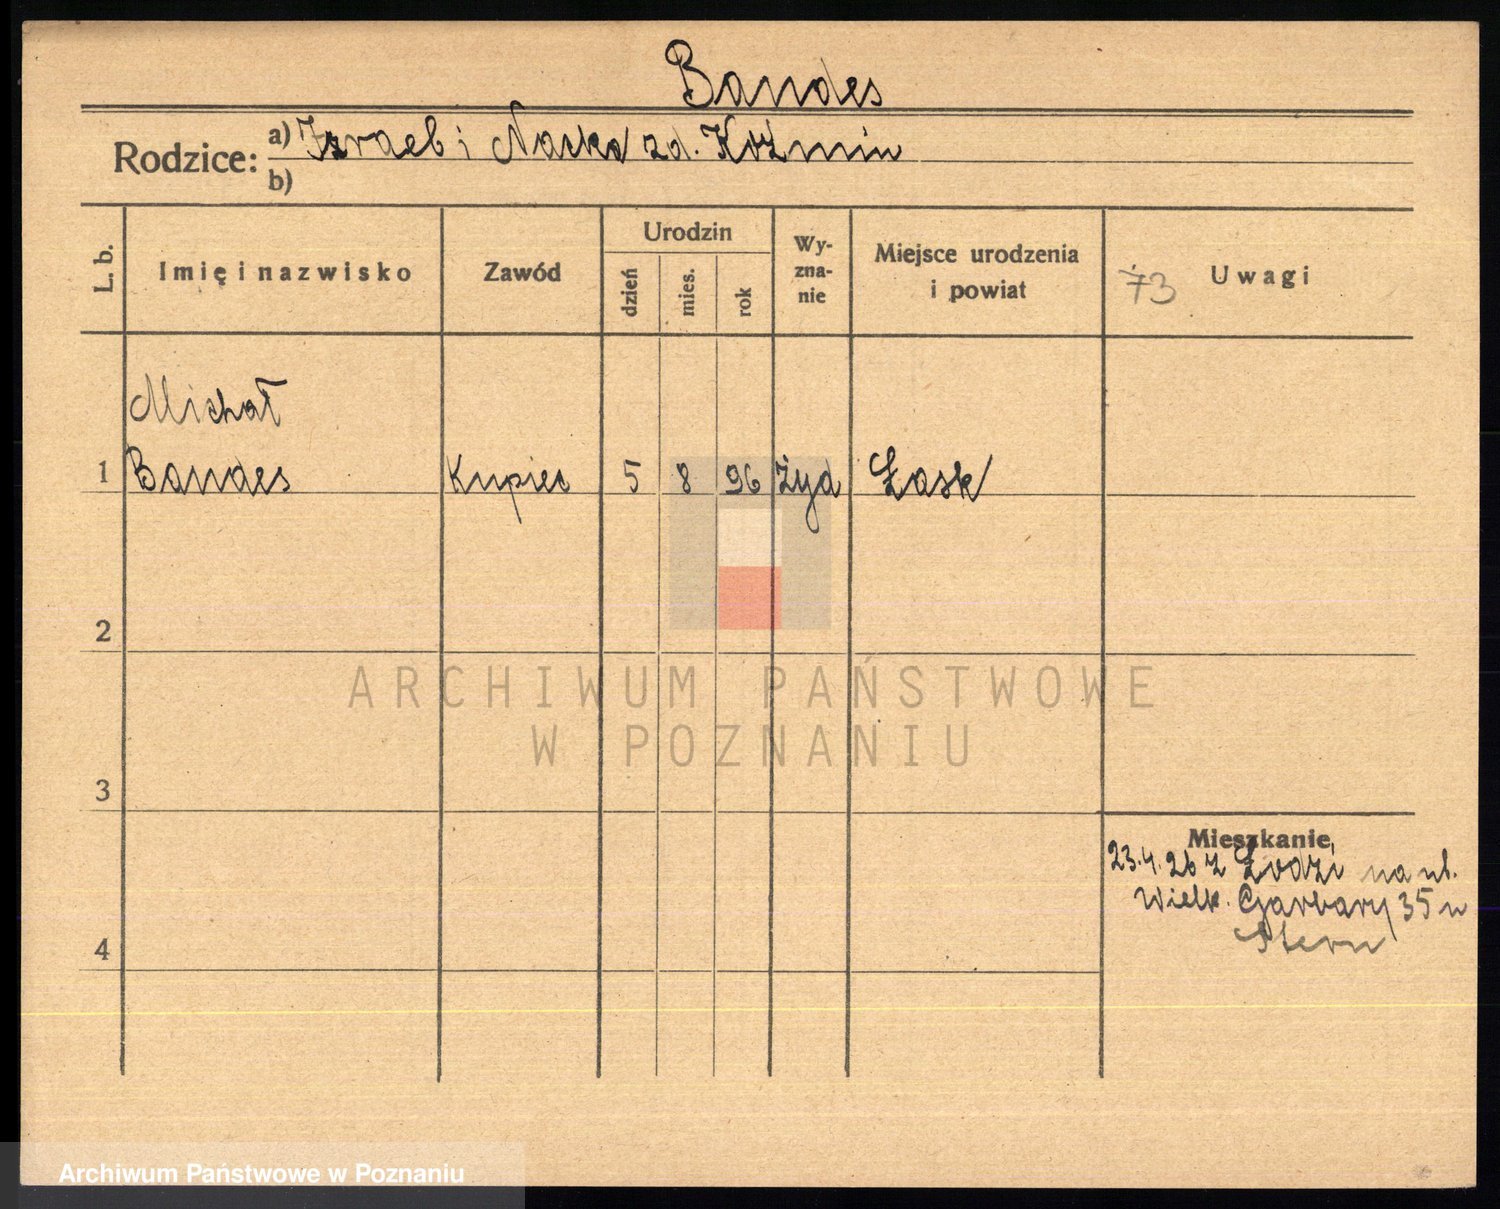 Bandes
Rodzice: a) Izrael i Nacka zd. Koźmin
b)
L. b. Imię i nazwisko Zawód Urodzin dzień mies. rok Wy-zna-nie Miejsce urodzenia i powiat 73 Uwagi
Michał
1 Bandes Kupiec 5 8 96 Żyd Łask
2
ARCHIWUM PAŃSTWOWE
W POZNANIU
3
Mieszkanie
23.4.26 z Łodzi na ul.
Wielk. Garbary 35 u
Stern
4
Archiwum Państwowe w Poznaniu